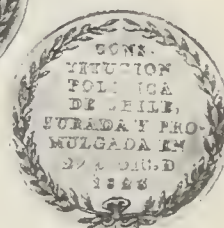 CONS-
TITUCION
POLITICA
DE CHILE,
JURADA Y PRO-
MULGADA EN
1828